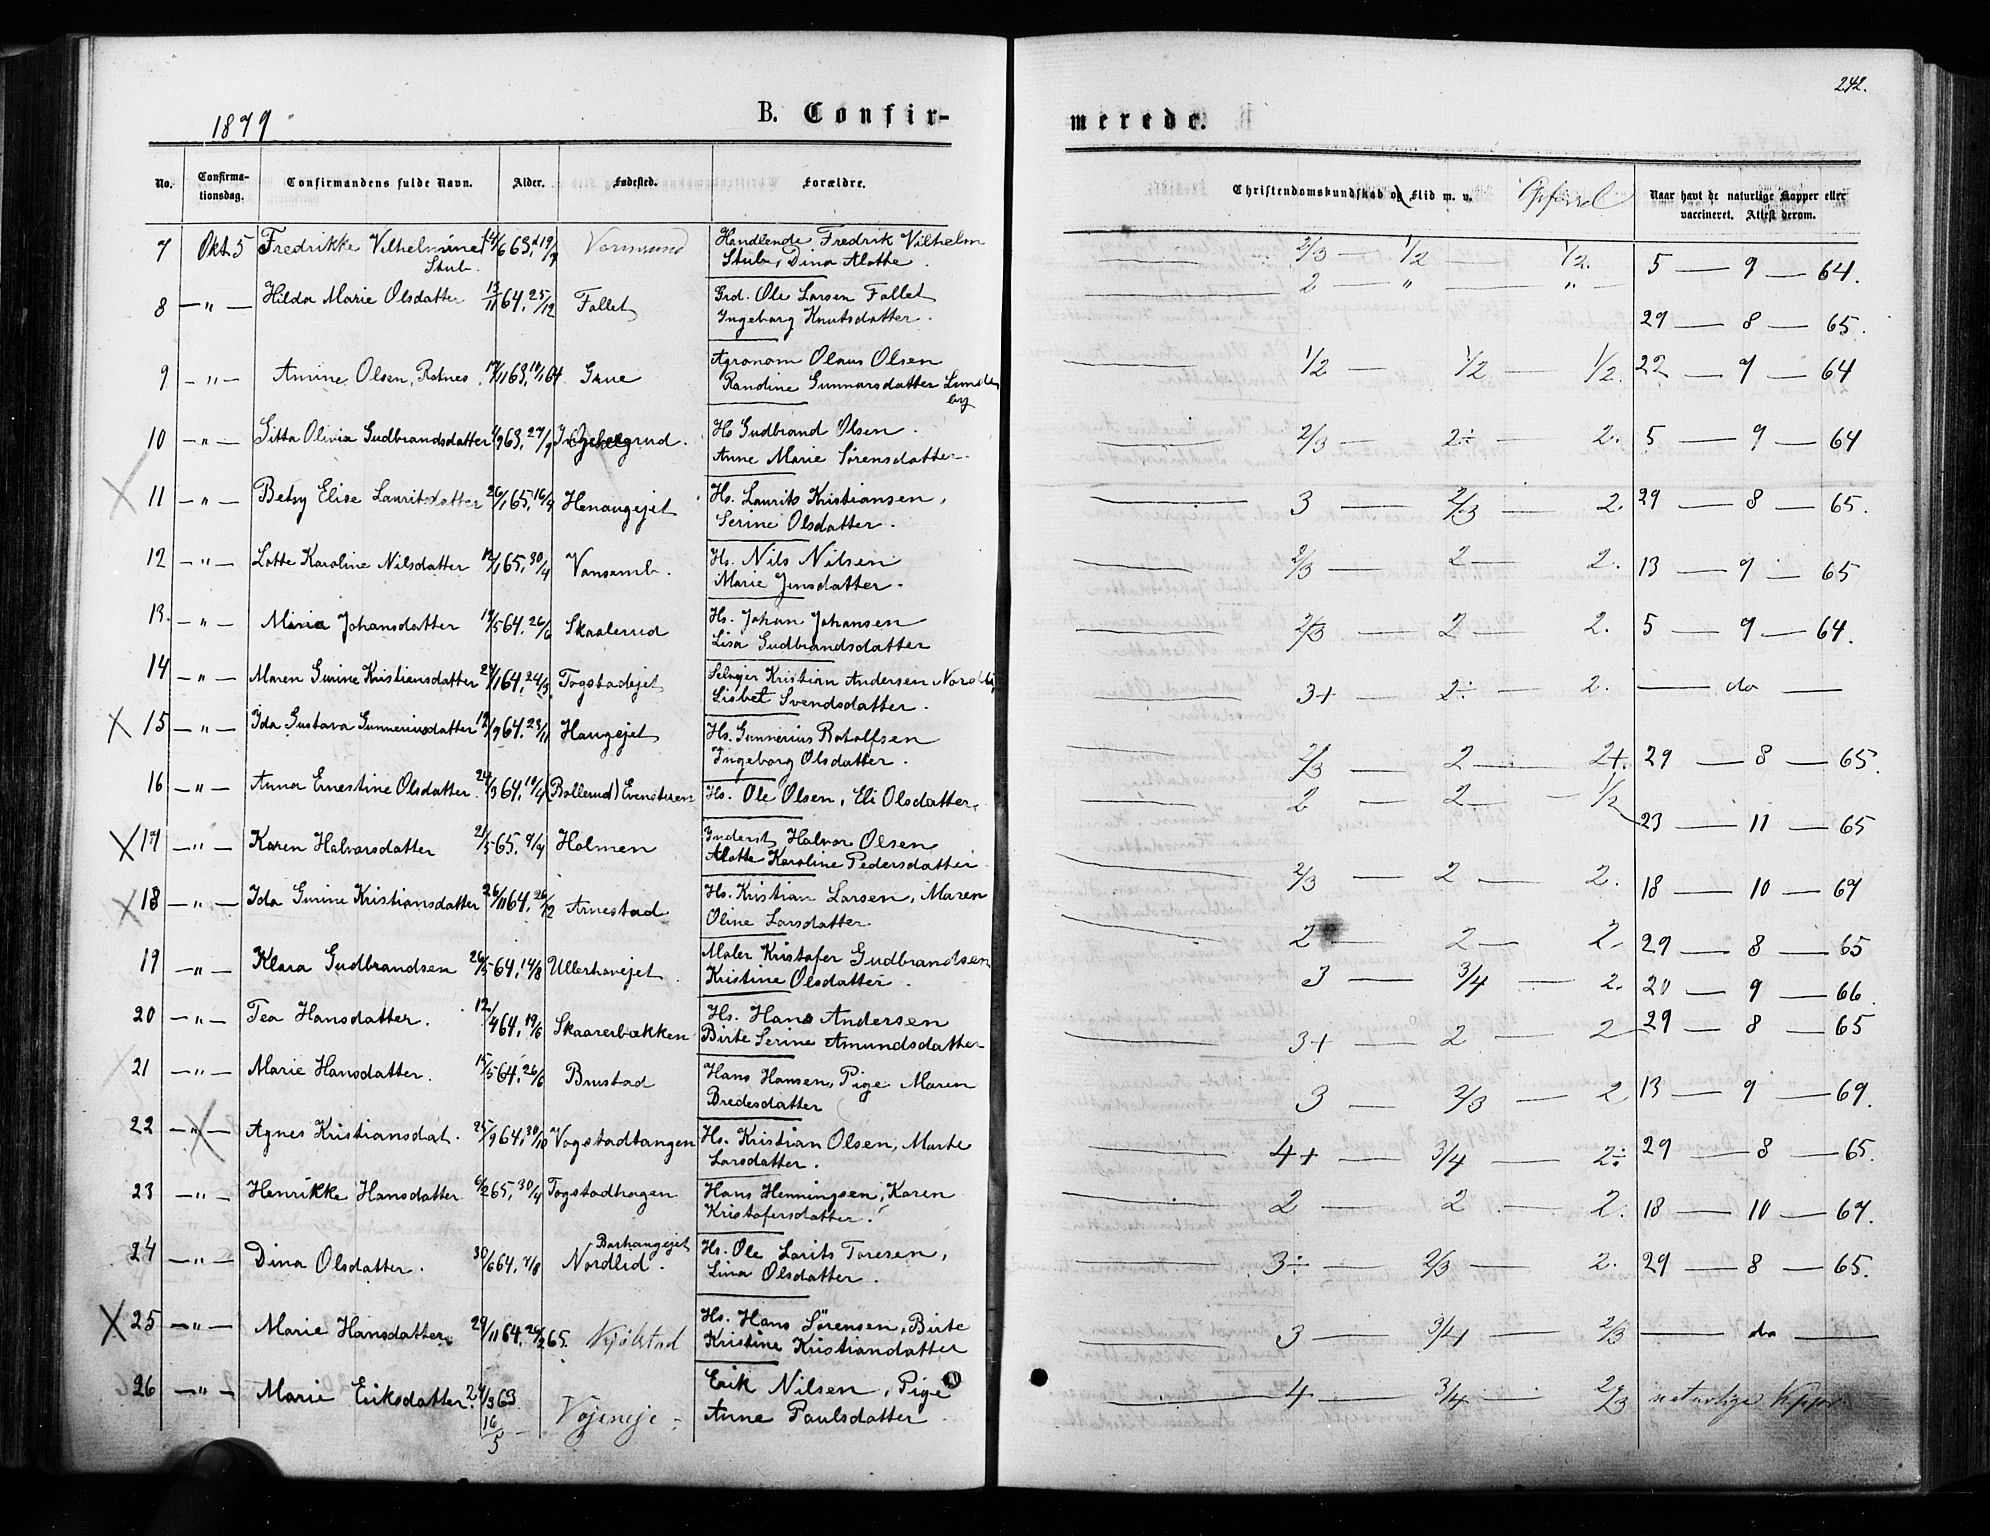 242.
1879
B. Confir-
merede.
No.
Confirma-
tionsdag.
Confirmandens fulde Navn.
Alder.
Fødested.
Forældre.
Christendomskundskab og Flid m. v.
Opførsel
Naar havt de naturlige Kopper eller
vaccineret. Attest derom.
7 Okt. 5 Fredrikke Vilhelmine Handlende Fredrik Vilhelm
Stub. Stub, Dina Alotte. 2/3 — 1/2 — 1/2. 5 — 9 — 64.
8 — " — Hilda Marie Olsdatter 13/11 64. 25/12 Fallet Grd. Ole Larsen Fallet
Ingeborg Knutsdatter. 2 — " — " — 29 — 8 — 65.
9 — " — Amine Olsen, Grue Agronom Olaus Olsen
Randine Gunnarsdatter 1/2 — 1/2 — 1/2. 22 — 9 — 64
10 — " — Sitta Olivia Gudbrandsdatter 63. 27/9 H Gudbrand Olsen.
Anne Marie Sørensdatter. 2/3 — 2÷ — 2. 5 — 9 — 64
11 — " — Betsy Elise Lauritsdatter 26/1 65. 16/4 Henaugejet Hs. Laurits Kristiansen,
Serine Olsdatter. 3 — 2/3 — 2. 29 — 8 — 65.
12 — " — Lotte Karoline Nilsdatter 12/1 65. 30/4 Vansemb. Hs. Nils Nilsen
Marie Jensdatter. 2/3 — 2 — 2. 13 — 9 — 65
13. — " — Johansdatter 19/5 64. 26/6 Skaalerud Hs. Johan Johansen
Lisa Gudbrandsdatter 2/3 — 2 — 2. 5 — 9 — 64.
14 — " — Maren Gurine Kristiansdatter 27/1 64. 24/3 Togstadejet Selvejer Kristian Andersen
Lisbet Svendsdatter. 3+ — 2÷ — 2. — do —
15 — " — Ida Gustava Gunneriusdatter 19/9 64. 23/11 Haugejet Hs. Gunnerius Rotolfsen
Ingeborg Olsdatter. 2/3 — 2 — 2+. 29 — 8 — 65.
16 — " — Anna Ernestine Olsdatter. 24/3 64. 19/4 (Bollerud) Evensteren Hs. Ole Olsen, Eli Olsdatter. 2 — 2 — 1/2 23 — 11 — 65
17 — " — Karen Halvorsdatter 21/5 65. 9/7 Holmen Inderst Halvor Olsen
Alotte Karoline Pedersdatter 2/3 — 2 — 2. 18 — 10 — 67
18 — " — Ida Gurine Kristiansdatter 26/11 64. 26/12 Arnestad Hs. Kristian Larsen, Maren
Oline Larsdatter. 2 — 2 — 2. 29 — 8 — 65
19 — " — Klara Gudbrandsen 26/5 64. 14/8 Ullerhavejet Maler Kristofer Gudbrandsen
Kristine Olsdatter. 3 — 3/4 — 2. 20 — 9 — 66
20 — " — Tea Hansdatter. 12/4 64. 19/6 Skaarerbækken Hs. Hans Andersen
Birte Serine Amundsdatter 3+ — 2 — 2 29 — 8 — 65
21 — " — Marie Hansdatter. 15/5 64. 26/6 Brustad Hans Hansen, Pige Maren
Dredesdatter 3 — 2/3 — 2 13 — 9 — 69.
22 — " — Agnes Kristiansdat. 25/9 64. 30/10 Vogstadtangen Hs. Kristian Olsen, Marte
Larsdatter. 4+ — 3/4 — 2÷ 29 — 8 — 65.
23 — " — Henrikke Hansdatter 6/2 65. 30/4 Togstadhagen Hans Henningsen, Karen
Kristofersdatter. 2 — 2 — 2. 18 — 10 — 67.
24 — " — Dina Olsdatter. 30/6 64. 7/8 Nordlid. Hs. Ole Lavits Toresen,
Lina Olsdatter. 3÷ — 2/3 — 2. 29 — 8 — 65.
25 — " — Marie Hansdatter. 29/11 64. 26/2 65. Kjølstad Hs. Hans Sørensen, Birte
Kristine Kristiandatter 3 — 3/4 — 2/3 — do —
26 — " — Marie Eriksdatter. 27/3 63. Erik Nilsen, Pige
16/5 Vøjeneje. Anne Paulsdatter. 4 — 3/4 — 2/3 naturlige Kopper.